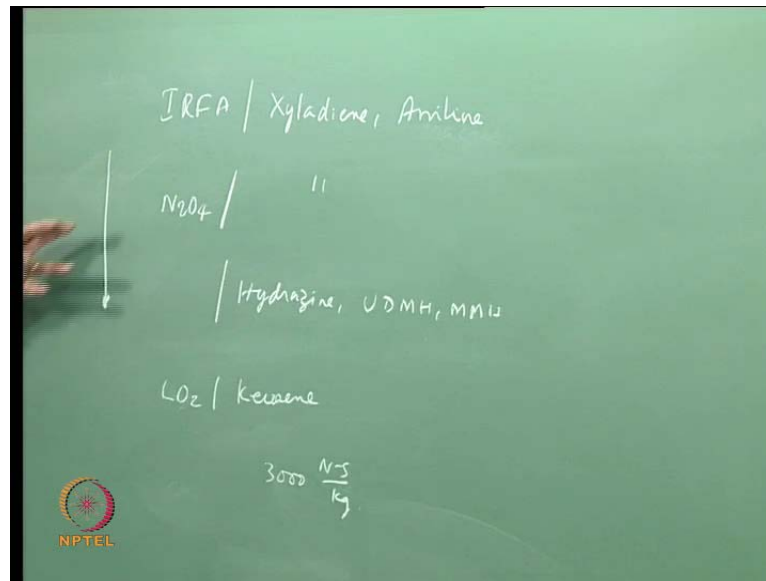 IRFA / Xyladiene, Aniline
N2O4 / "
/ Hydrazine, UDMH, MMH
LO2 / Kerosene
3000 N-S/kg
NPTEL